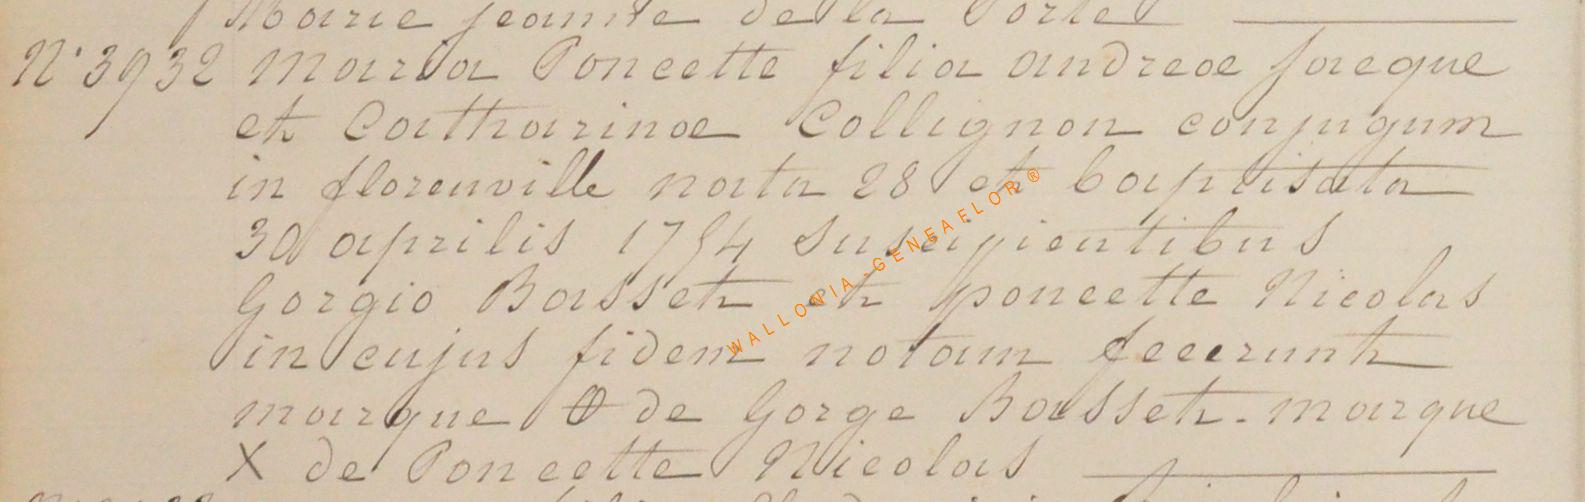 Marie jeanne de la Porte
N° 3932 Maria Poncette filia andreae Jacque
et Catharinae Collignon conjugum
in florenville nata 28 et baptisata
30 aprilis 1754 suscipientibus
Gorgio Basset et poncette Nicolas
in cujus fidem notam fecerunt
marque O de Gorge Basset. marque
X de Poncette Nicolas
WALLONIA-GENEAFLOR®